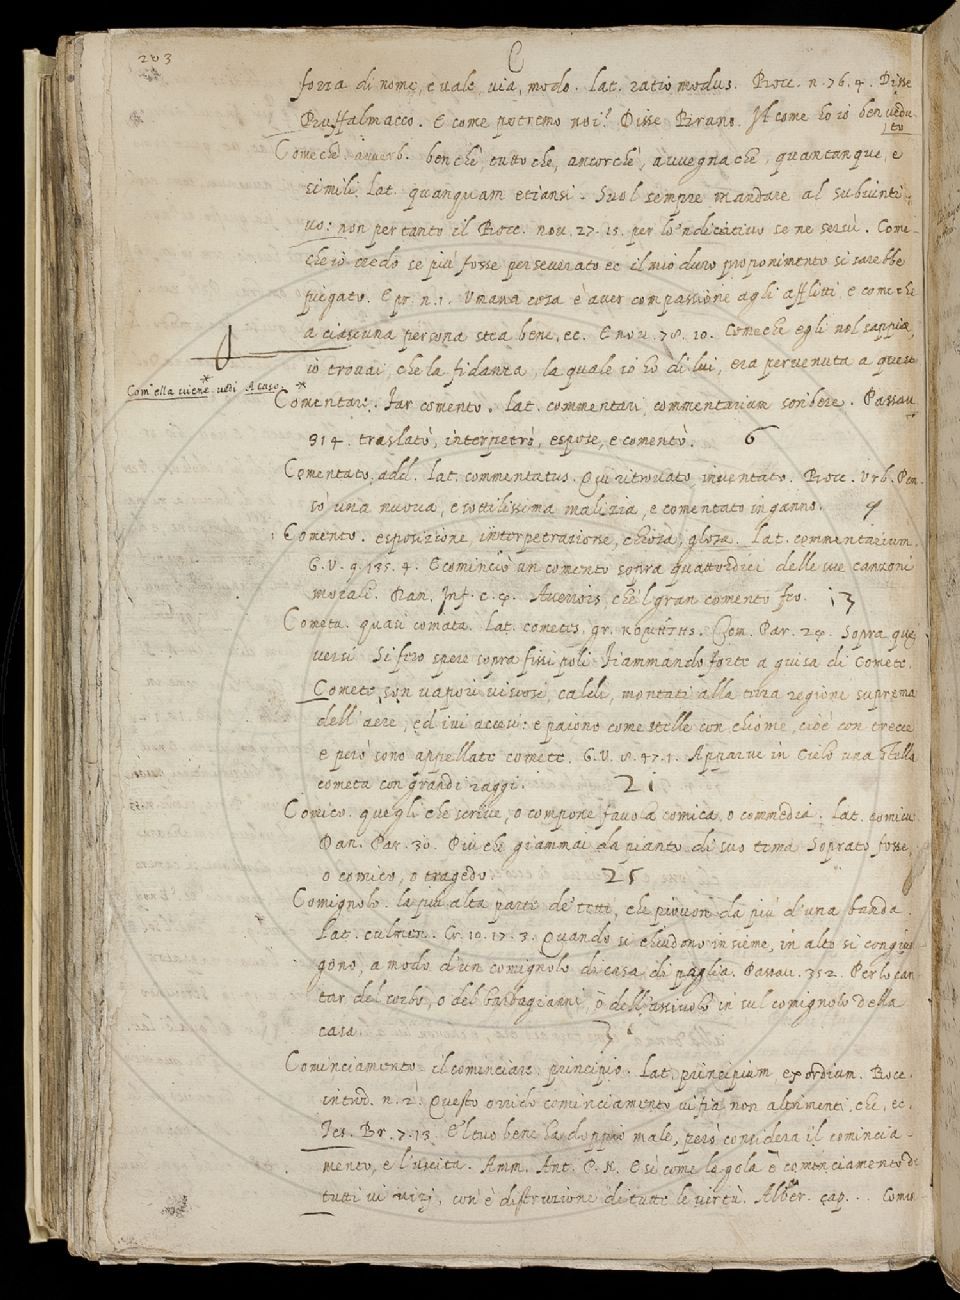 203
C
forza di nome, e vale, via, modo. Lat. ratio modus. Bocc. n. 76. 4. Disse
Buffalmacco. E come potremo noi? Disse Bruno. Il come ho io ben vedu
to
Comechè avverb. benchè, tutto che, ancorchè, avvegnachè, quantunque, e
simili. Lat. quanquam etiansi. Suol sempre mandare al subiunti
vo: non pertanto il Bocc. nov. 27. 15. per lo 'ndicativo se ne servì. Come-
che io credo se più fosse perseverato ec il mio duro proponimento si sarebbe
piegato. E pr. n. 1. Umana cosa è aver compassione agli afflitti e come che
a ciascuna persona stea bene, ec. E nov. 78. 10. Comeche egli nol sappia,
io trovai, che la fidanza, la quale io ho di lui, era pervenuta a queste
Com'ella viene. vedi A caso. *
Comentare. Far comento. Lat. commentari commentarium scribere. Passav
314. traslatò, interpetrò, espose, e comentò. 6
Comentato, add. Lat. commentatus. Qui ritrovato inventato. Bocc. Urb. Pen-
sò una nuova, e sottilissima malizia, e comentato inganno. 9
Comento. esposizione, interpetrazione, chiosa, glosa. Lat. commentarium.
G. V. 9. 135. 4. E cominciò un comento sopra quattordici delle sue canzoni
morali. Dan. Inf. c. 4. Averrois, che 'l gran comento feo. 13
Cometa. quasi comata. Lat. cometes. gr. κομήτης. Dan. Par. 24. Sopra quei
versi Si fero spere sopra fissi poli Fiammando forte a guisa di Comete.
Comete son vapori viscosi, caldi, montati alla terza regione suprema
dell'aere, ed ivi accesi: e paiono come stelle con chiome, cioè con trecce
e però sono appellate comete. G. V. 8. 47. 1. Apparve in Cielo una Stella
cometa con grandi raggi. 21
Comico. quegli che scrive, o compone favola comica, o commedia. Lat. comicus
Dan. Par. 30. Più che giammai da punto di suo tema Soprato fosse,
o comico, o tragedo 25
Comignolo. la più alta parte de' tetti, che piovon da più d'una banda.
Lat. culmen. Cr. 10. 17. 3. Quando si chiudono insieme, in alto si congiun-
gono, a modo d'un comignolo di casa di paglia. Passav. 352. Per lo can
tar del corbo, o del barbagianni, o dell'assiuolo in sul comignolo della
casa. 3
Cominciamento. il cominciare. principio. Lat. principium exordium. Bocc.
introd. n. 2. Questo orrido cominciamento vi fia non altrimenti, che, ec.
Tes. Br. 7. 13. E 'l tuo bene ha doppio male, però considera il comincia-
mento, e l'uscita. Amm. Ant. E sì come la gola è cominciamento di
tutti vi vizj, con è distruzione di tutte le virtù. Alber. cap. .. Comin